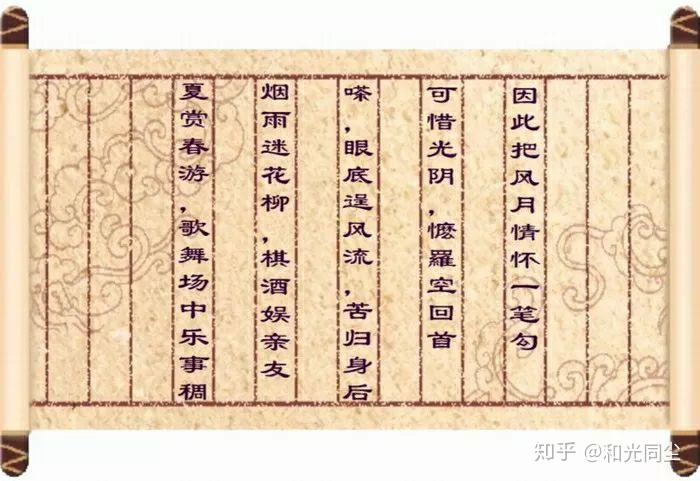 夏赏春游，歌舞场中乐事稠
烟雨迷花柳，棋酒娱亲友
嗏，眼底逞风流，苦归身后
可惜光阴，懡羅空回首
因此把风月情怀一笔勾
知乎 @和光同尘